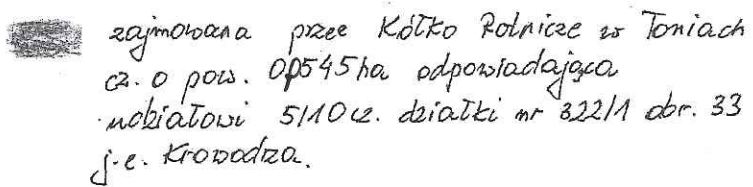 zajmowana przez Kółko Rolnicze w Toniach
cz. o pow. 0,0545 ha odpowiadająca
udziałowi 5/10 cz. działki nr 322/1 obr. 33
j.e. Krowodrza.